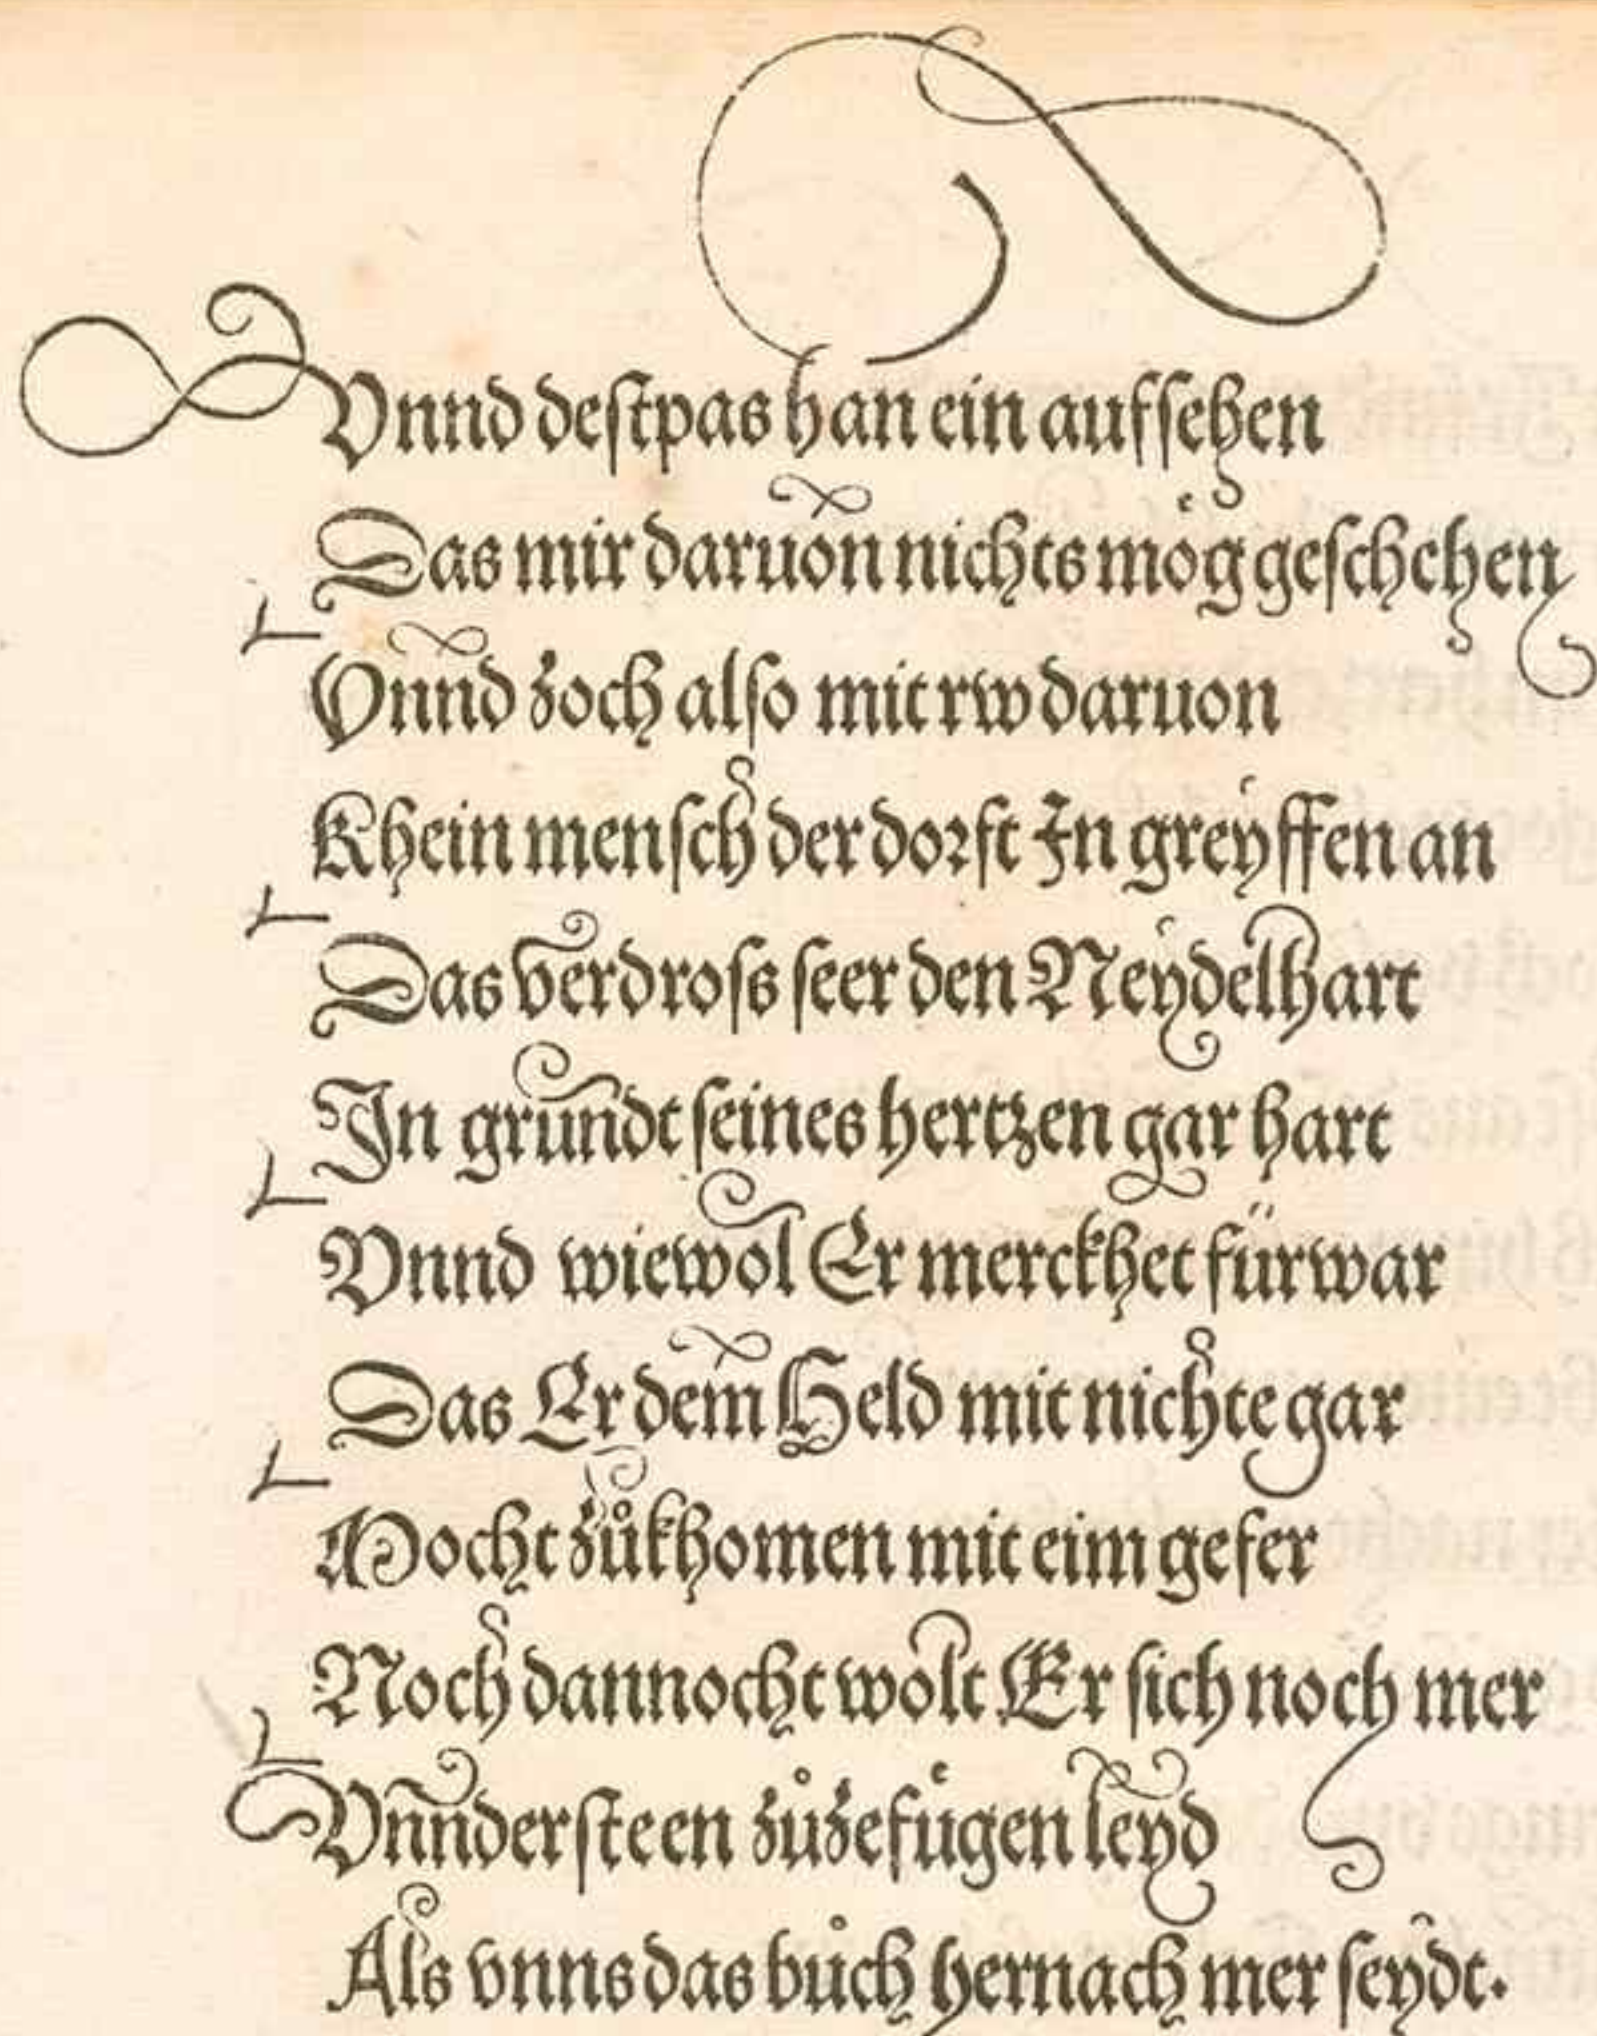 Vnnd destpas han ein aufsehen
Das mir daruon nichts mög geschehen
Vnnd zoch also mit rw daruon
Khein mensch der dorft In greyffen an
Das verdross seer den Neydelhart
In grundt seines hertzen gar hart
Vnnd wiewol Er merckhet fürwar
Das Er dem Held mit nichte gar
Mocht zůkhomen mit eim gefer
Noch dannocht wolt Er sich noch mer
Vnndersteen zůzefuͤgen leyd
Als vnns das bůch hernach mer seydt.